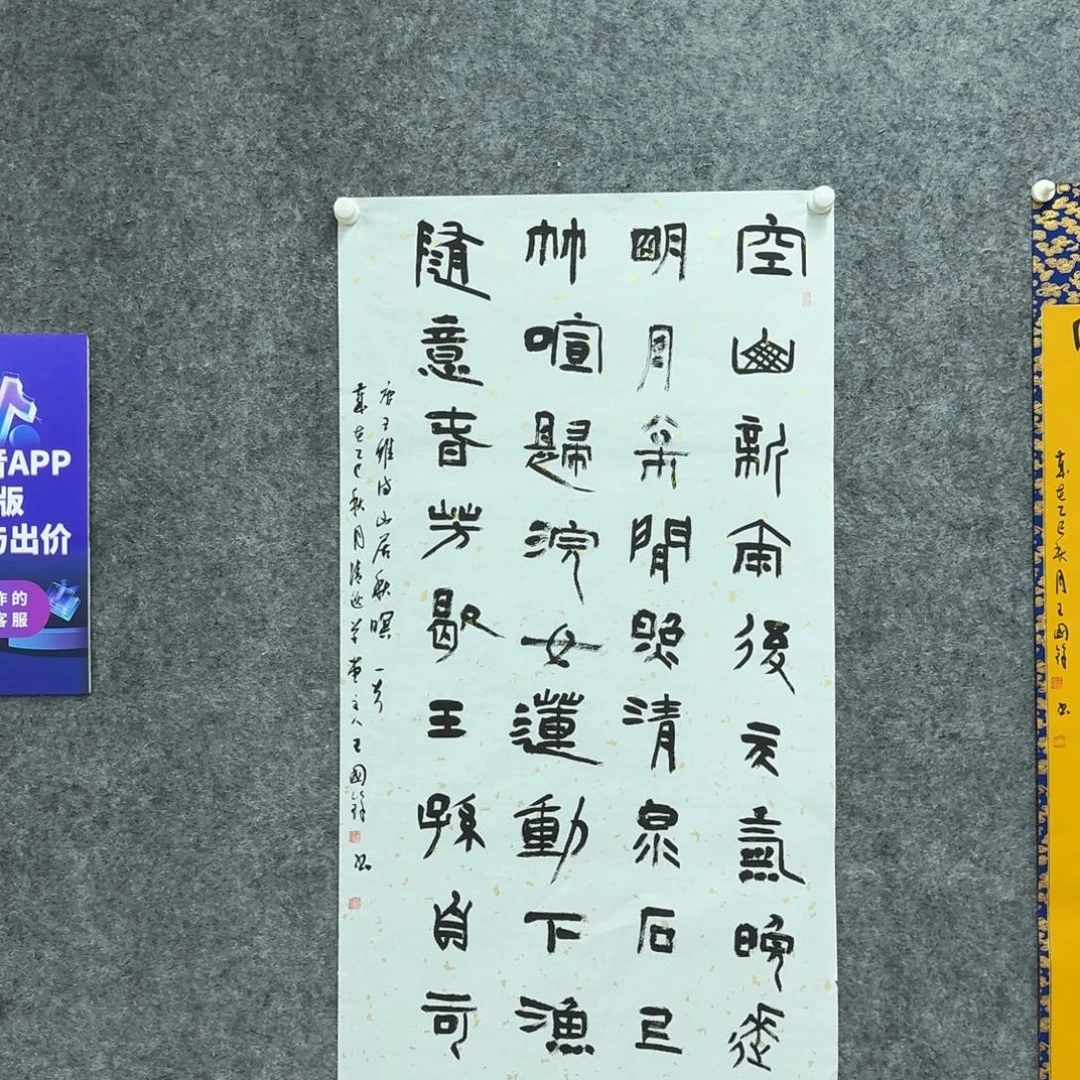 空山新雨後天氣晚來
明月松間照清泉石上
竹喧歸浣女蓮動下漁
隨意春芳歇王孫自可
唐王維诗山居秋暝一首
歲在乙巳秋月清逸草堂主人王國鋒书
APP
版
与出价
作的
客服
歲在乙巳秋月王國鋒书